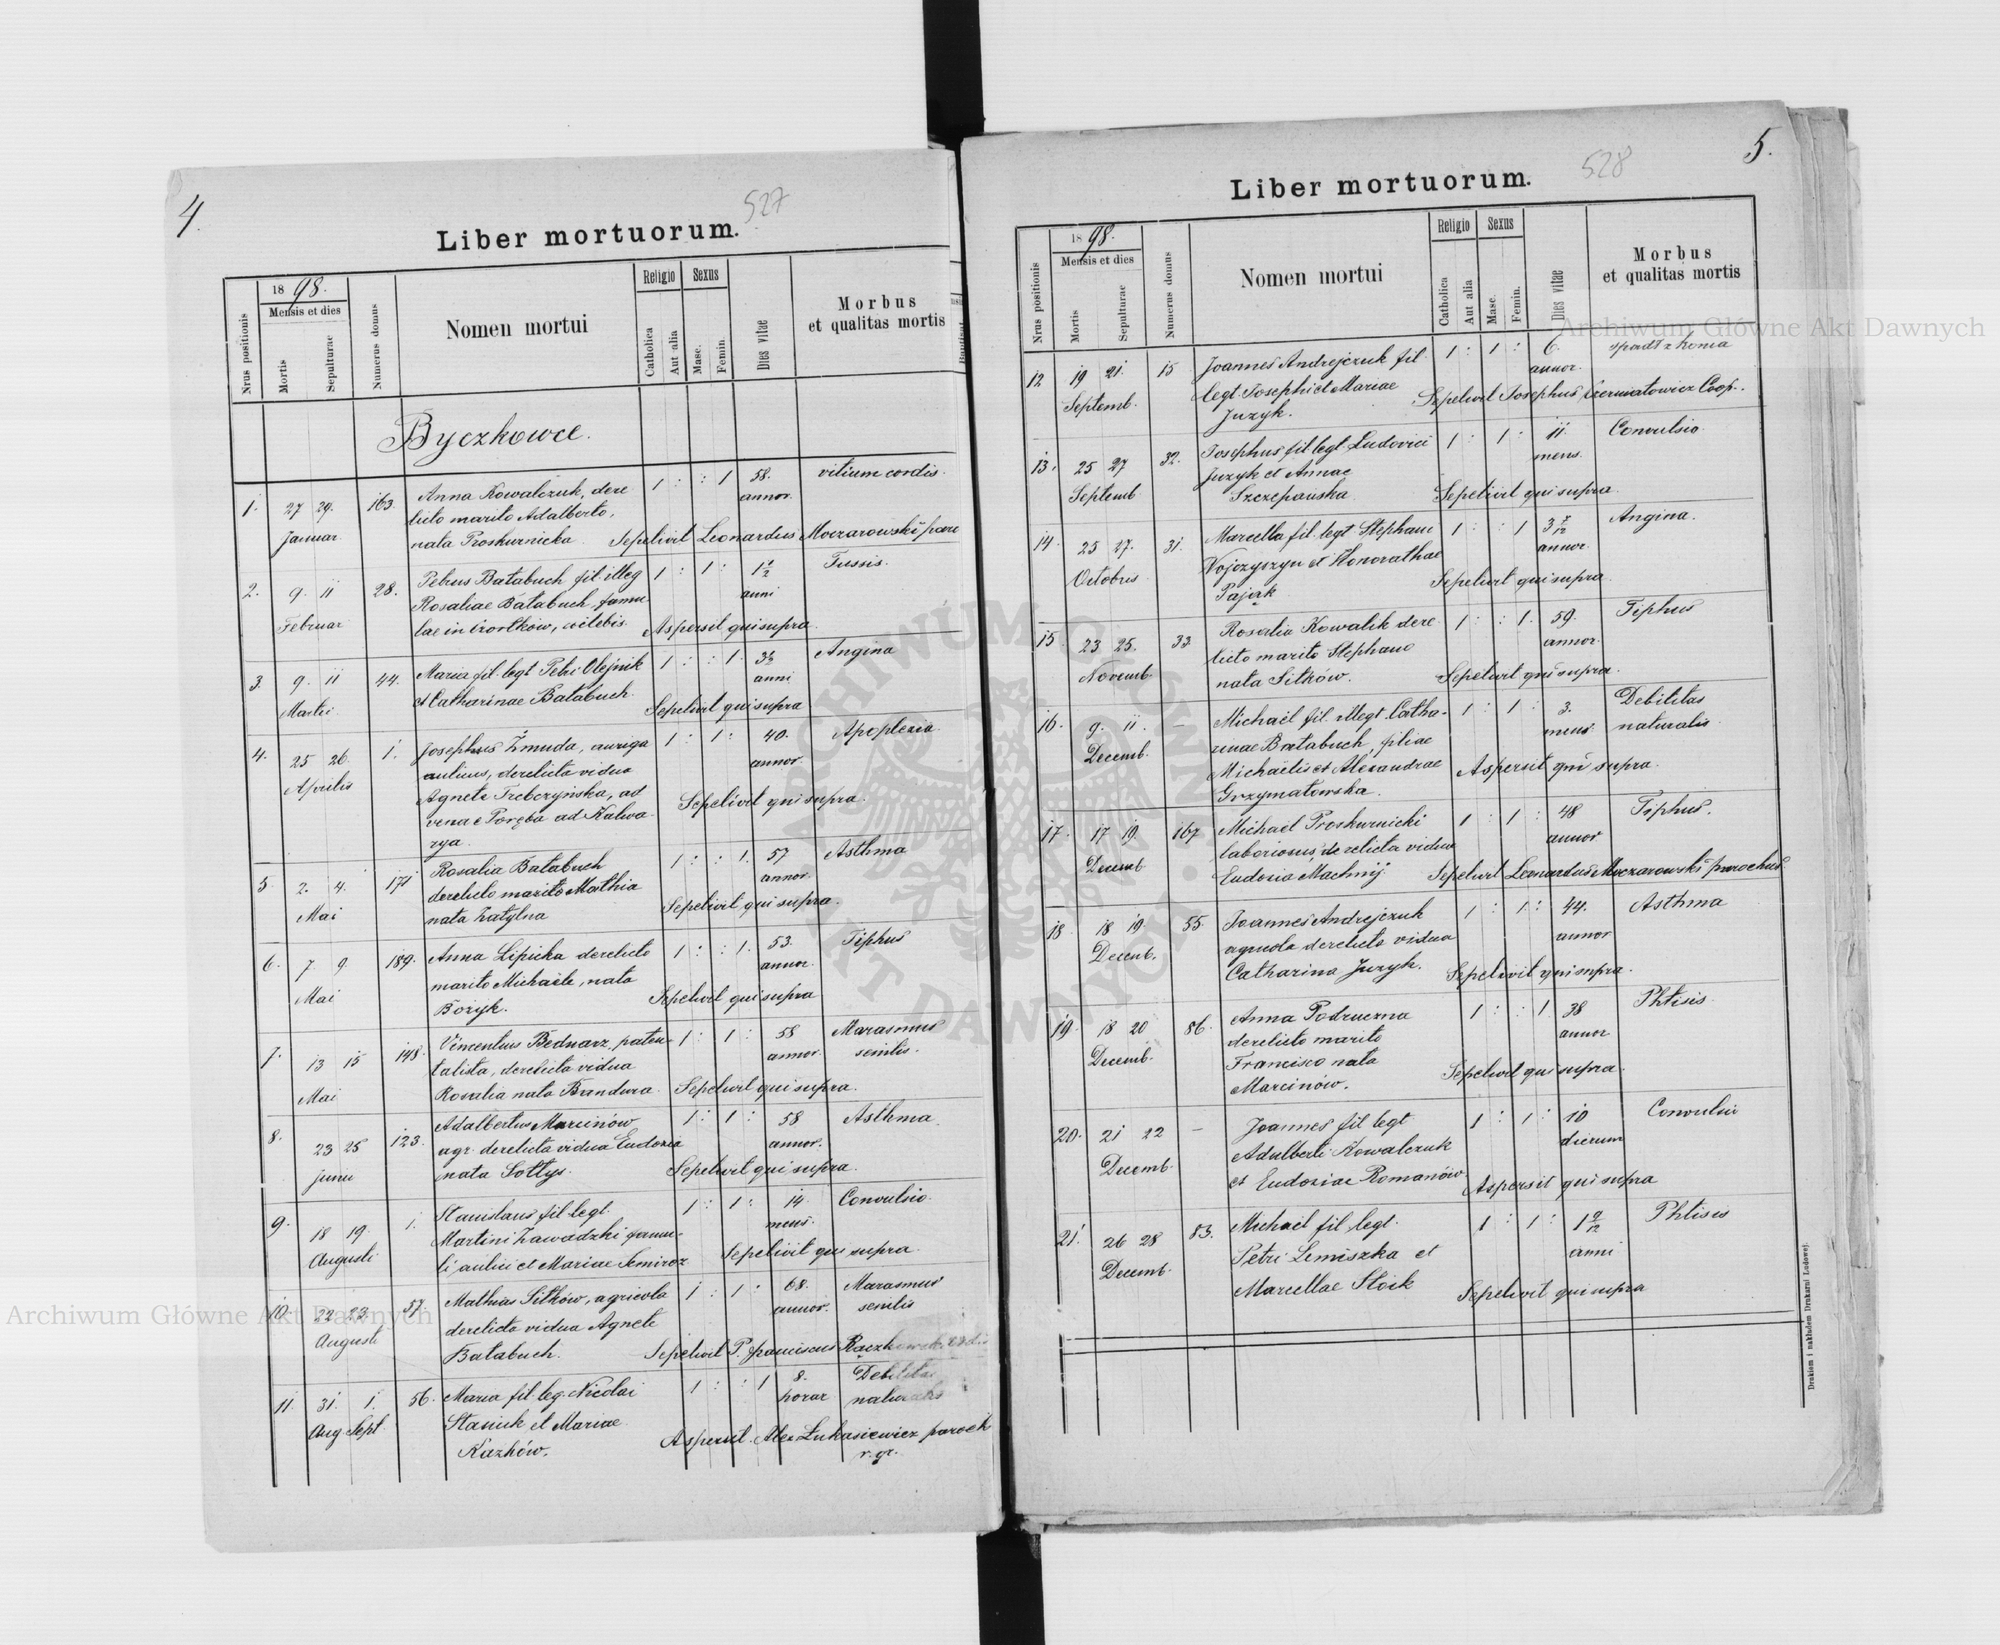 4.
527
Liber mortuorum.
Nrus positionis
1898.
Mensis et dies
Mortis
Sepulturae
Numerus domus
Nomen mortui
Religio
Catholica
Aut alia
Sexus
Masc.
Femin.
Dies vitae
Morbus
et qualitas mortis
Byczkowce.
1. 27 29. 163. Anna Kowalczuk, dere 1 : : 1 58. vitium cordis.
Januar. licto marito Adalberto, annor.
nata Proskurnicka Sepelivit Leonardus Moczarowski paro
2. 9. 11 28. Petrus Bałabuch fil. illeg 1 : 1 : 1 1/2 Tussis.
Februar Rosaliae Bałabuch, famu anni
lae in Czortków, coelebis. Aspersit qui supra.
3. 9. 11 44. Maria fil. legt Petri Olejnik 1 : : 1. anni Angina
Martii et Catharinae Bałabuch. Sepelivit qui supra
4. 25 26. 1. Josephus Żmuda, auriga 1 : 1 : 40. Apoplexia
Aprilis aulicus, derelicta vidua annor.
Agnete Trebczyńska, ad Sepelivit qui supra.
vena e Poręba ad Kalwa
rya.
5. 2. 4. 171 Rosalia Bałabuch 1 : : 1. 57 Asthma
Mai derelicto marito Mathia annor.
nata Zatylna Sepelivit qui supra.
6. 7. 9. 189. Anna Lipicka derelicto 1 : : 1. 53. Tiphus
Mai marito Michaële, nata annor.
Boryk. Sepelivit qui supra
7. 13 15 148. Vincentius Bednarz, paten 1 : 1 : 58 Marasmus
Mai talista, derelicta vidua annor. senilis.
Rosalia nata Bandura. Sepelivit qui supra.
8. 23 25 123. Adalbertus Marcinów 1 : 1 : 58 Asthma
Junii agr. derelicta vidua Eudoxia annor.
nata Sołtys. Sepelivit qui supra.
9. 18 19 1. Stanislaus fil. legt. 1 : 1 : 14. Convulsio.
Augusti Martini Zawadzki famu mens.
li aulici et Mariae Semiroz Sepelivit qui supra.
10. 22 23. 57. Mathias Sitków, agricola 1 : 1 : 68. Marasmus
Augusti derelicta vidua Agnete annor. senilis
Bałabuch. Sepelivit P. Franciscus
11. 31. 1. 56. Maria fil. leg. Nicolai 1 : : 1 8. Debilitas
Aug Sept. Stasiuk et Mariae horar naturalis
Kazków. Aspersit Alex Łukasiewicz paroch
r. gr.
5.
528
Liber mortuorum.
Nrus positionis
1898.
Mensis et dies
Mortis
Sepulturae
Numerus domus
Nomen mortui
Religio
Catholica
Aut alia
Sexus
Masc.
Femin.
Dies vitae
Morbus
et qualitas mortis
12 19 21. 15 Joannes Andrejczuk fil 1 : 1 : 6. spadł z konia
Septemb. legt. Josephi et Mariae annor.
Juzyk. Sepelivit Josephus Coop.
13. 25 27 32. Josephus fil legt Ludovici 1 : 1 : 11 Convulsio
Septemb Juzyk et Annae mens.
Szczepańska Sepelivit qui supra
14 25 27. 31. Marcella fil. legt Stephani 1 : : 1 3 Angina.
Octobris Wojczyszyn et Honorathae annor.
Pająk Sepelivit qui supra
15 23 25. 33 Rosalia Kowalik dere 1 : : 1. 59. Tiphus
Novemb licto marito Stephano annor.
nata Sitków. Sepelivit qui supra.
16. 9. 11. — Michaël fil. illegt. Catha- 1 : 1 : 3. Debilitas
Decemb. rinae Bałabuch, filiae mens. naturalis
Michaëlis et Alexandrae Aspersit qui supra.
Grzymałowska.
17. 17 19. 167 Michaël Proskurnicki 1 : 1 : 48 Tiphus.
Decemb laboriosus, derelicta vidua annor
Eudoxia Machnij Sepelivit Leonardus Moczarowski parochus
18 18 19. 55. Joannes Andrejczuk 1 : 1 : 44. Asthma
Decemb. agricola derelicta vidua annor
Catharina Juzyk. Sepelivit qui supra.
19. 18 20 86. Anna Podruczna 1 : : 1 38 Phtisis
Decemb. derelicto marito annor
Francisco nata Sepelivit qui supra.
Marcinów.
20. 21 22 — Joannes fil legt 1 : 1 : 10 Convulsii
Decemb. Adalberti Kowalczuk dierum
et Eudoxiae Romanów Aspersit qui supra
21. 26 28 83. Michaël fil. legt. 1 : 1 : Phtisis
Decemb. Petri Lemiszka et anni
Marcellae Słoik Sepelivit qui supra
Drukiem i nakładem Drukarni Ludowej.
Archiwum Główne Akt Dawnych
Archiwum Główne Akt Dawnych
ARCHIWUM GŁÓWNE AKT DAWNYCH